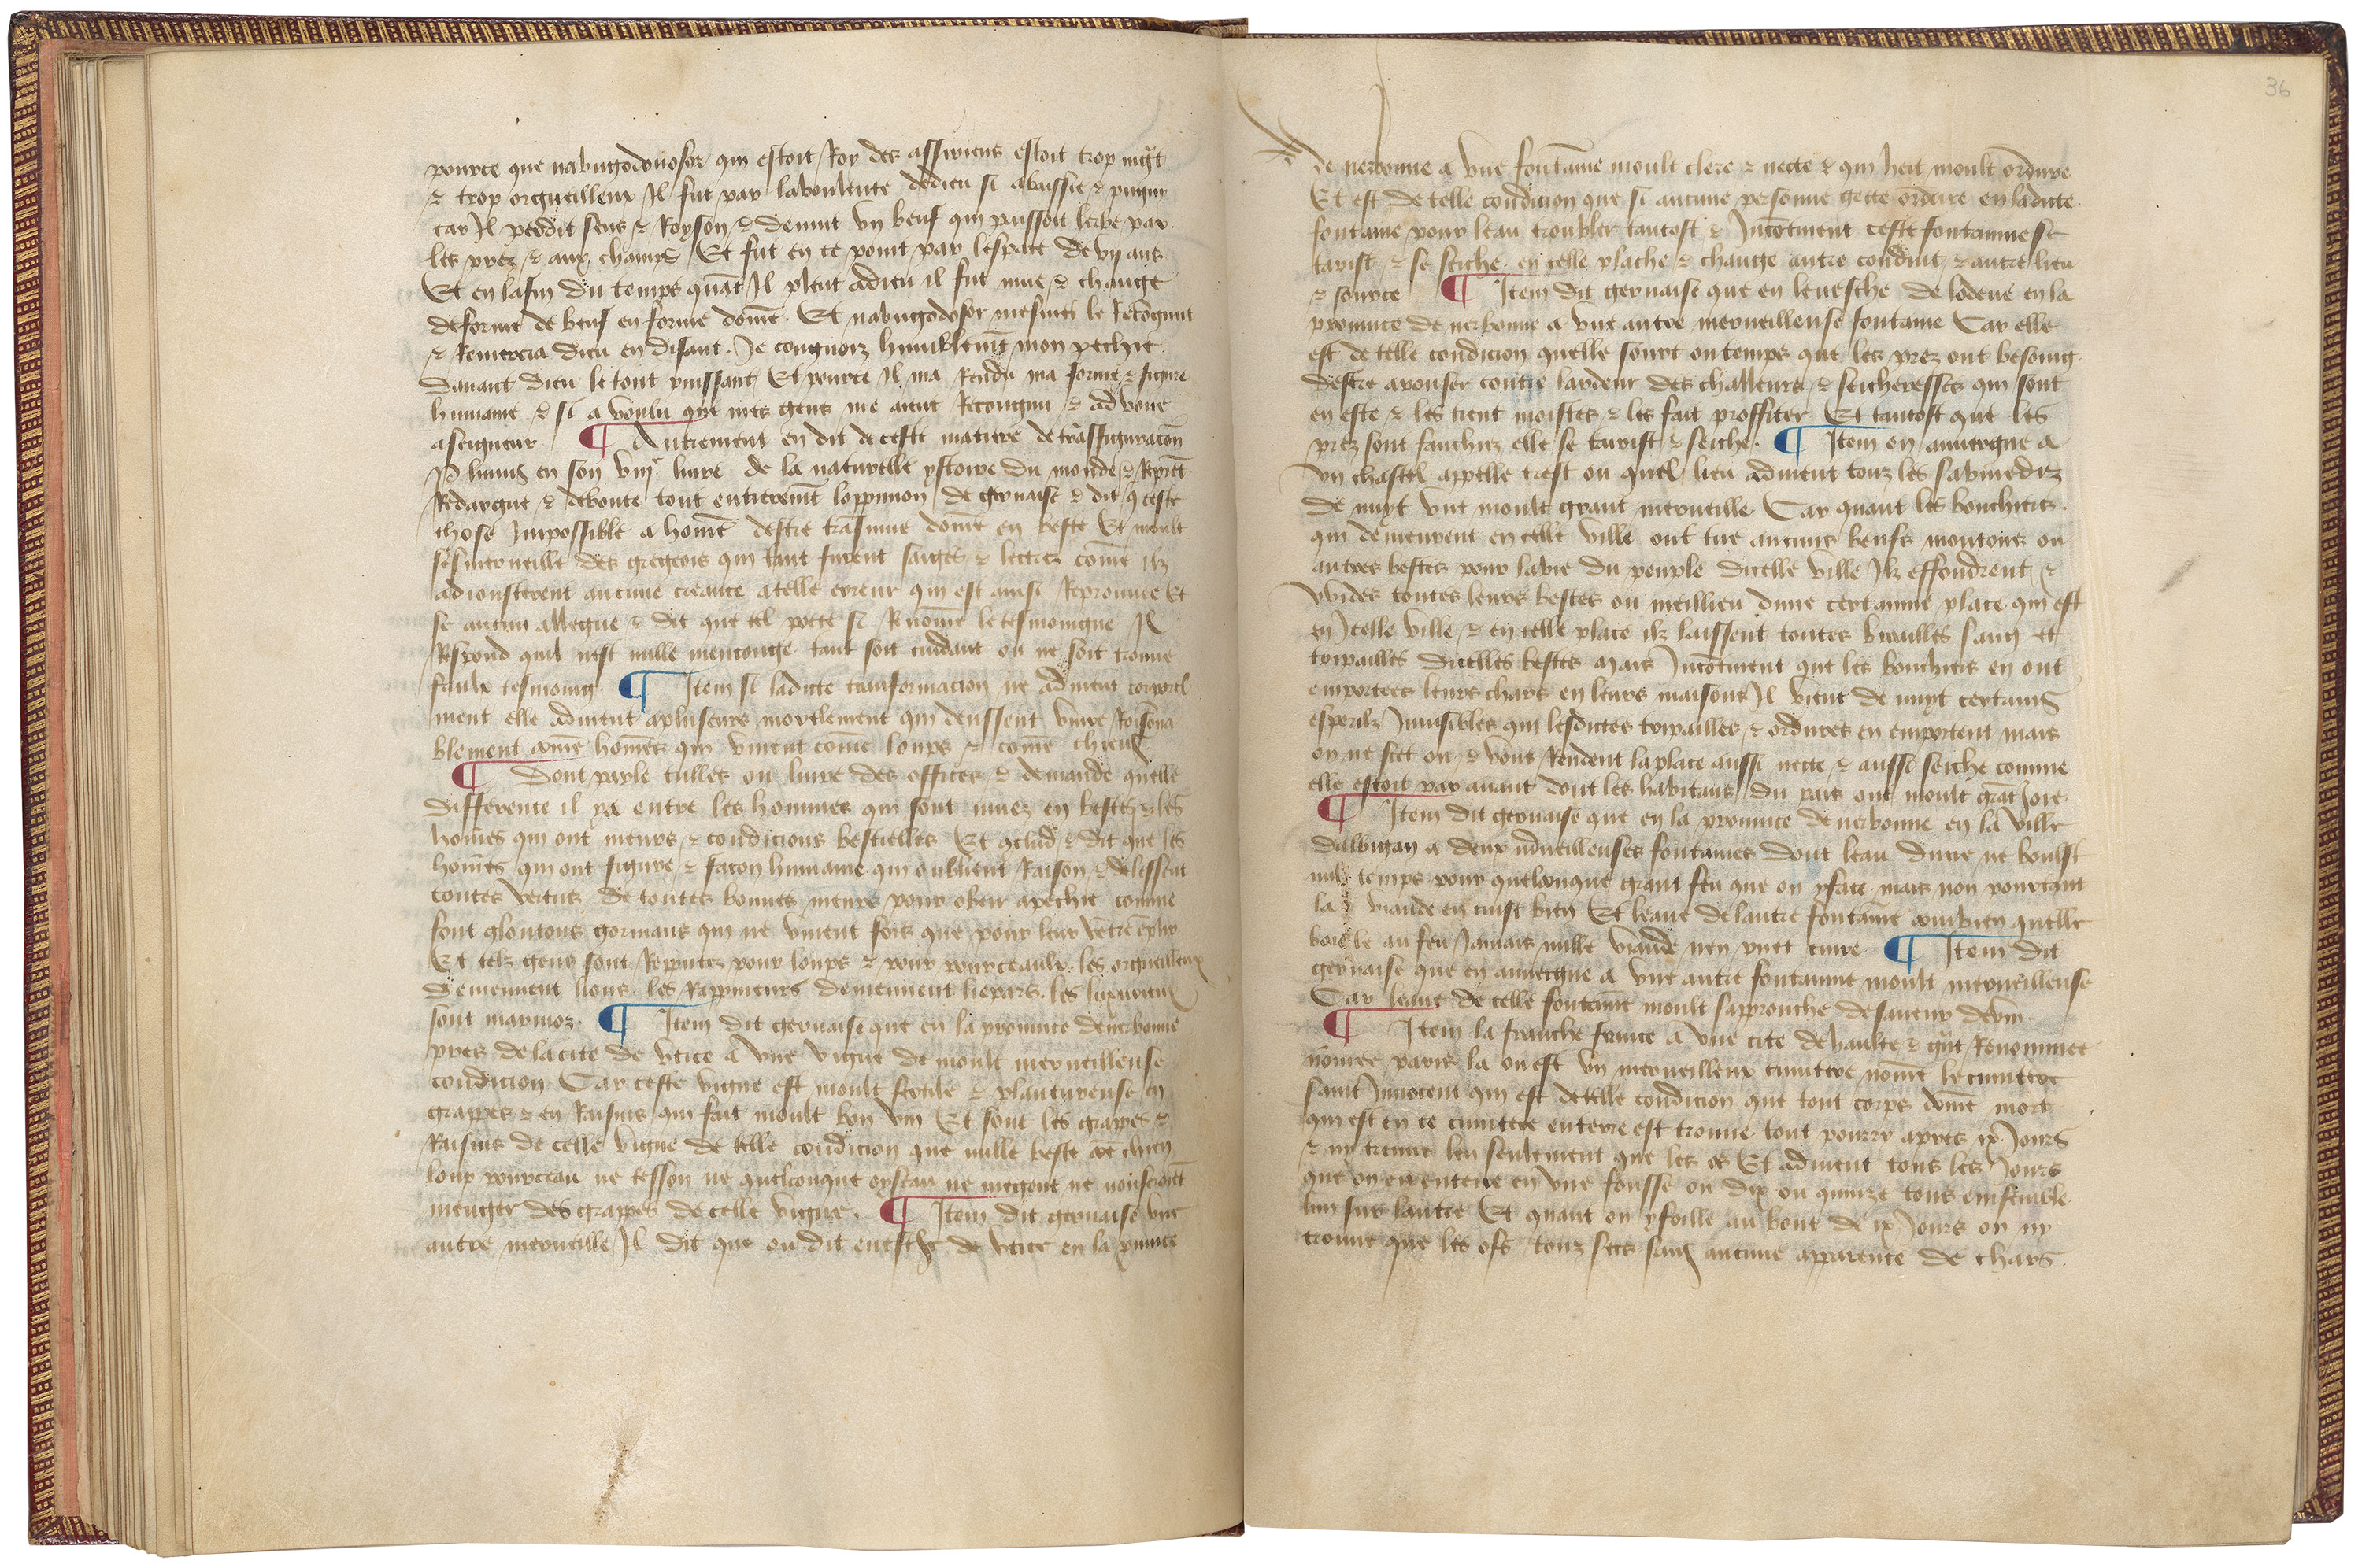 pource que nabugodonosor qui estoit Roy des assiriens estoit trop
& trop orgueilleux Il fut par la voulente de dieu si abaissie & pugny
car Il perdit sens & Royson & devint vn beuf qui paissoit lerbe par
les prez & aux champs Et fut en ce point par lespace de vij ans
Et en la fin du temps quāt Il pleut a dieu il fut mue & change
de forme de beuf en forme dōme. Et nabugodosor mesmes le Recongnut
& Remercia dieu en disant. Je congnois humblemēt mon pechie
dauant dieu le tout puissant Et pource Il ma Rendu ma forme & figure
humaine & si a voulu que mes gens me aient Recongnu & advoue
a seigneur ¶ Autrement en dit de ceste matiere de trāsfiguracōn
Plinius en son viije liure de la naturelle ystoire du monde &
Redargue & deboute tout entieremēt loppinion de geruaise & dit q̄ ceste
chose Impossible a homē destre trāsmue domē en beste Et moult
sesmerueille des gregeois qui tant furent saiges & lectrez comē ilz
adiousterent aucune creance a telle erreur qui est ainsi Reprouuee Et
se aucun allegue & dit que tel poete si Renōme le tesmoingne Il
Respond quil nest nulle mencongne tant soit cuidant ou ne soit trouue
faulx tesmoing. ¶ Item si ladicte transformacion ne aduient corporel
ment elle aduient a pluseurs mortelement qui deussent viure Roisōna
blement comē homēs qui viuent comē loups & comē chiens
¶ Dont parle tulles ou liure des offices & demande quelle
difference il ya entre les hommes qui sont muez en bestes & les
homēs qui ont meurs & condicions bestielles Et & dit que les
homēs qui ont figure & facon humaine qui oublient Raison & delessent
toutes vertus de toutes bonnes meurs pour obeir a pechie comme
sont gloutons gormans qui ne viuent fors que pour leur vētre
Et telz gens sont Reputez pour loups & pour pourceaulx. les orgueilleux
deuiennent lions. les Rappineurs deuiennent liepars. les luxurieux
sont marmoz. ¶ Item dit geruaise que en la prouince de nerbonne
pres de la cite de vtice a vne vigne de moult merueilleuse
condicion Car ceste vigne est moult fertile & plantureuse en
grappes & en Raisins qui fait moult bon vin Et sont les grappes &
Raisins de celle vigne de telle condicion que nulle beste chien
loup pourceau ne tesson ne quelconque oyseau ne
menger des grappes de celle vigne. ¶ Item dit geruaise vne
autre merueille Il dit que ou dit euesche de vtice en la prouince
36
de nerbonne a vne fontaīne moult clere & necte & qui heit moult ordure
Et est de telle condicion que si aucune personne gecte ordure en ladicte
fontaine pour leau troubler tantost & Incōtinent ceste fontainne se
tarist & se seiche en celle place & change autre conduit & autre lieu
& source ¶ Item dit geruaise que en leuesche de lodeue en la
prouince de nerbonne a vne autre merueilleuse fontaine Car elle
est de telle condicion quelle sourt ou temps que les prez ont besoing
destre arouser contre lardeur des challeurs & seicheresses qui sont
en este & les tient moistes & les fait proffiter Et tantost que les
prez sont fauchiez elle se tarist & seiche. ¶ Item en auuergne a
vn chastel appelle trest ou quel lieu aduient touz les
de nuyt vne moult grant merueille Car quant les bouchiers
qui demeurent en celle ville ont tue aucuns beufs moutons ou
autres bestes pour la vie du peuple dicelle ville Ilz effondrent &
vuides toutes leurs bestes ou meillieu dune certainne place qui est
en Icelle ville & en celle place ilz laissent toutes brouilles sang et
tripailles dicelles bestes Mais Incōtinent que les bouchiers en ont
emportees leurs chars en leurs maisons Il vient de nuyt certains
esperilz Inuisibles qui lesdictes tripailles & ordures en emportent mais
on ne scet ou & vous Rendent la place aussi necte & aussi seiche comme
elle estoit par auant dont les habitans du pais ont moult grāt Joie
¶ Item dit geruaise que en la prouince de nerbonne en la ville
dalbigan a deux merueilleuses fontaines dont leau dune ne boulist
nul temps pour quelconque grant feu que on y face mais non pourtant
la viande en cuist bien Et leaue de lautre fontaīne combien quelle
boulle au feu Jamais nulle viande nen puet cuire ¶ Item dit
geruaise que en auuergne a vne autre fontainne moult merueilleuse
Car leaue de celle fontainne moult sapprouche de saueur de vin
¶ Item la franche france a vne cite de haulte & grāt Renommee
nōmee paris la ou est vn merueilleux cimitere nōme le cimitere
saint Innocent qui est de telle condicion que tout corps dōme mort
qui est en ce cimitere enterre est trouue tout pourry apres ix Jours
& ny treuue len seulement que les os Et aduient tous les Jours
que on en enterre en vne fousse ou dix ou quinze tous ensemble
lun sur lautre Et quant on y foille au bout de ix Jours on ny
trouue que les ofs touz secs sans aucune apparence de chars.